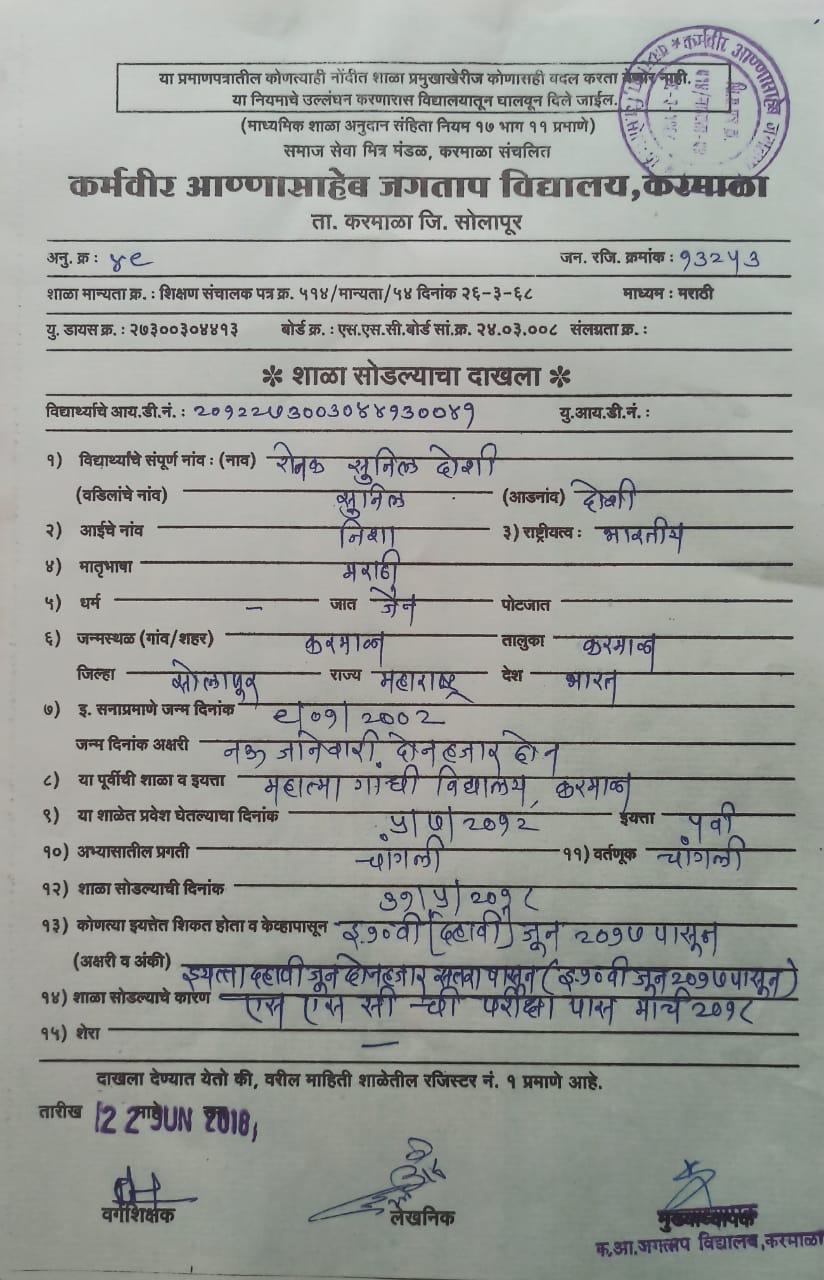 या प्रमाणपत्रातील कोणत्याही नोंदीत शाळा प्रमुखाखेरीज कोणासही बदल करता येणार नाही.
या नियमाचे उल्लंघन करणारास विद्यालयातून घालवून दिले जाईल.
(माध्यमिक शाळा अनुदान संहिता नियम १७ भाग ११ प्रमाणे)
समाज सेवा मित्र मंडळ, करमाळा संचलित
कर्मवीर आण्णासाहेब जगताप विद्यालय, करमाळा
ता. करमाळा जि. सोलापूर
अनु. क्र : ४९ जन. रजि. क्रमांक : १३२५३
शाळा मान्यता क्र. : शिक्षण संचालक पत्र क्र. ५१४/मान्यता/५४ दिनांक २६-३-६८ माध्यम : मराठी
यु. डायस क्र. : २७३००३०४४१३ बोर्ड क्र. : एस.एस.सी.बोर्ड सां.क्र. २४.०३.००८ संलग्नता क्र. :
✽ शाळा सोडल्याचा दाखला ✽
विद्यार्थ्याचे आय.डी.नं. : २०१२२७३००३०४४१३००४१ यु.आय.डी.नं. :
१) विद्यार्थ्याचे संपूर्ण नांव : (नाव) रोनक सुनिल दोशी
(वडिलांचे नांव) सुनिल (आडनांव) दोशी
२) आईचे नांव निशा ३) राष्ट्रीयत्व : भारतीय
४) मातृभाषा मराठी
५) धर्म – जात जैन पोटजात
६) जन्मस्थळ (गांव/शहर) करमाळा तालुका करमाळा
जिल्हा सोलापूर राज्य महाराष्ट्र देश भारत
७) इ. सनाप्रमाणे जन्म दिनांक ९/०१/२००२
जन्म दिनांक अक्षरी नऊ जानेवारी दोनहजार दोन
८) या पूर्वीची शाळा व इयत्ता महात्मा गांधी विद्यालय, करमाळा
९) या शाळेत प्रवेश घेतल्याचा दिनांक ५/७/२०१२ इयत्ता ५वी
१०) अभ्यासातील प्रगती चांगली ११) वर्तणूक चांगली
१२) शाळा सोडल्याची दिनांक ३१/५/२०१८
१३) कोणत्या इयत्तेत शिकत होता व केव्हापासून इ.१०वी (दहावी) जून २०१७ पासून
(अक्षरी व अंकी) इयत्ता दहावी जून दोनहजार सतरा पासून (इ.१०वी जून २०१७ पासून)
१४) शाळा सोडल्याचे कारण एस एस सी ची परीक्षा पास मार्च २०१८
१५) शेरा —
दाखला देण्यात येतो की, वरील माहिती शाळेतील रजिस्टर नं. १ प्रमाणे आहे.
तारीख 22 JUN 2018
वर्गशिक्षक लेखनिक मुख्याध्यापक
क.आ.जगताप विद्यालय,करमाळा